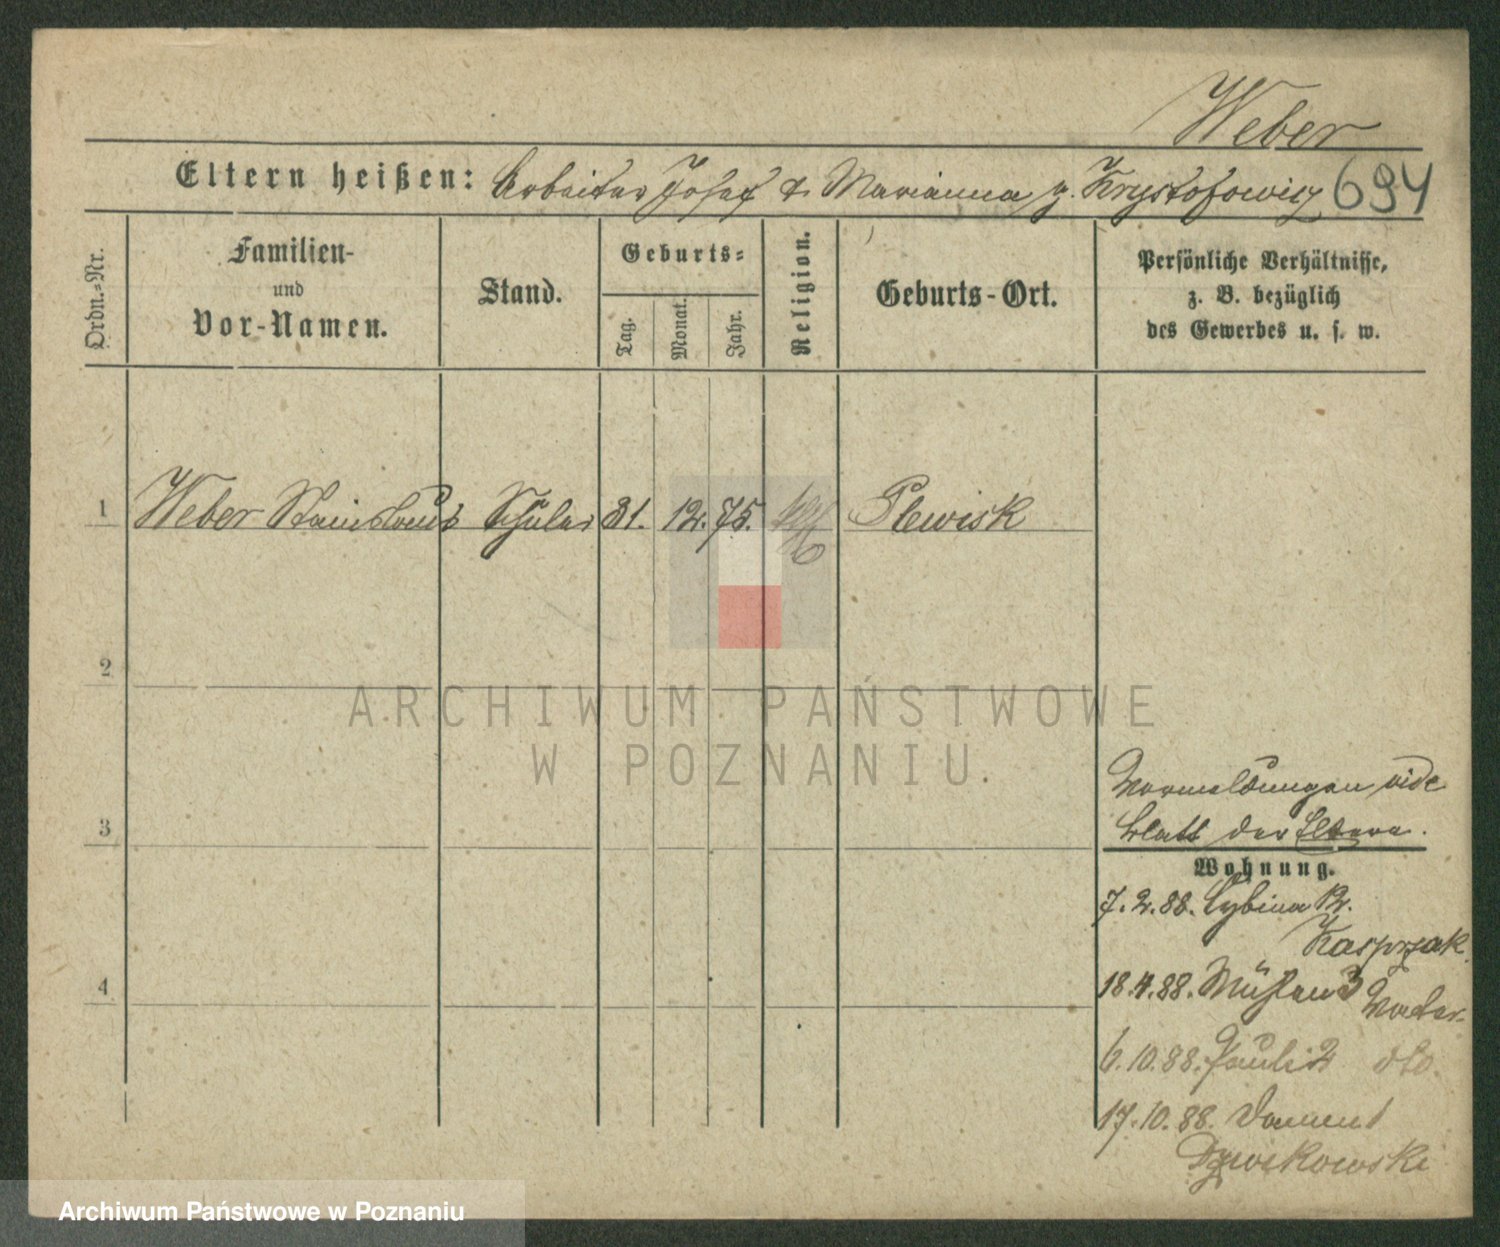 Weber
Eltern heißen: Arbeiter Josef & Marianna g. Krystofowicz 694
Ordn.-Nr.
Familien-
und
Vor-Namen.
Stand.
Geburts-
Tag.
Monat.
Jahr.
Religion.
Geburts-Ort.
Persönliche Verhältnisse,
z. B. bezüglich
des Gewerbes u. s. w.
1 Weber Stanislaus Schüler 31. 12. 75. kath Plewisk
2
3
4
Vormeldungen vide
blatt der Eltern.
Wohnung.
7.2.88. Cybina 12.
Kasprzak.
18.4.88. Mühlen 3 Vater.
6.10.88. Pauli 2 dto.
17.10.88. Damm 1
Dzwikowski
ARCHIWUM PAŃSTWOWE
W POZNANIU.
Archiwum Państwowe w Poznaniu